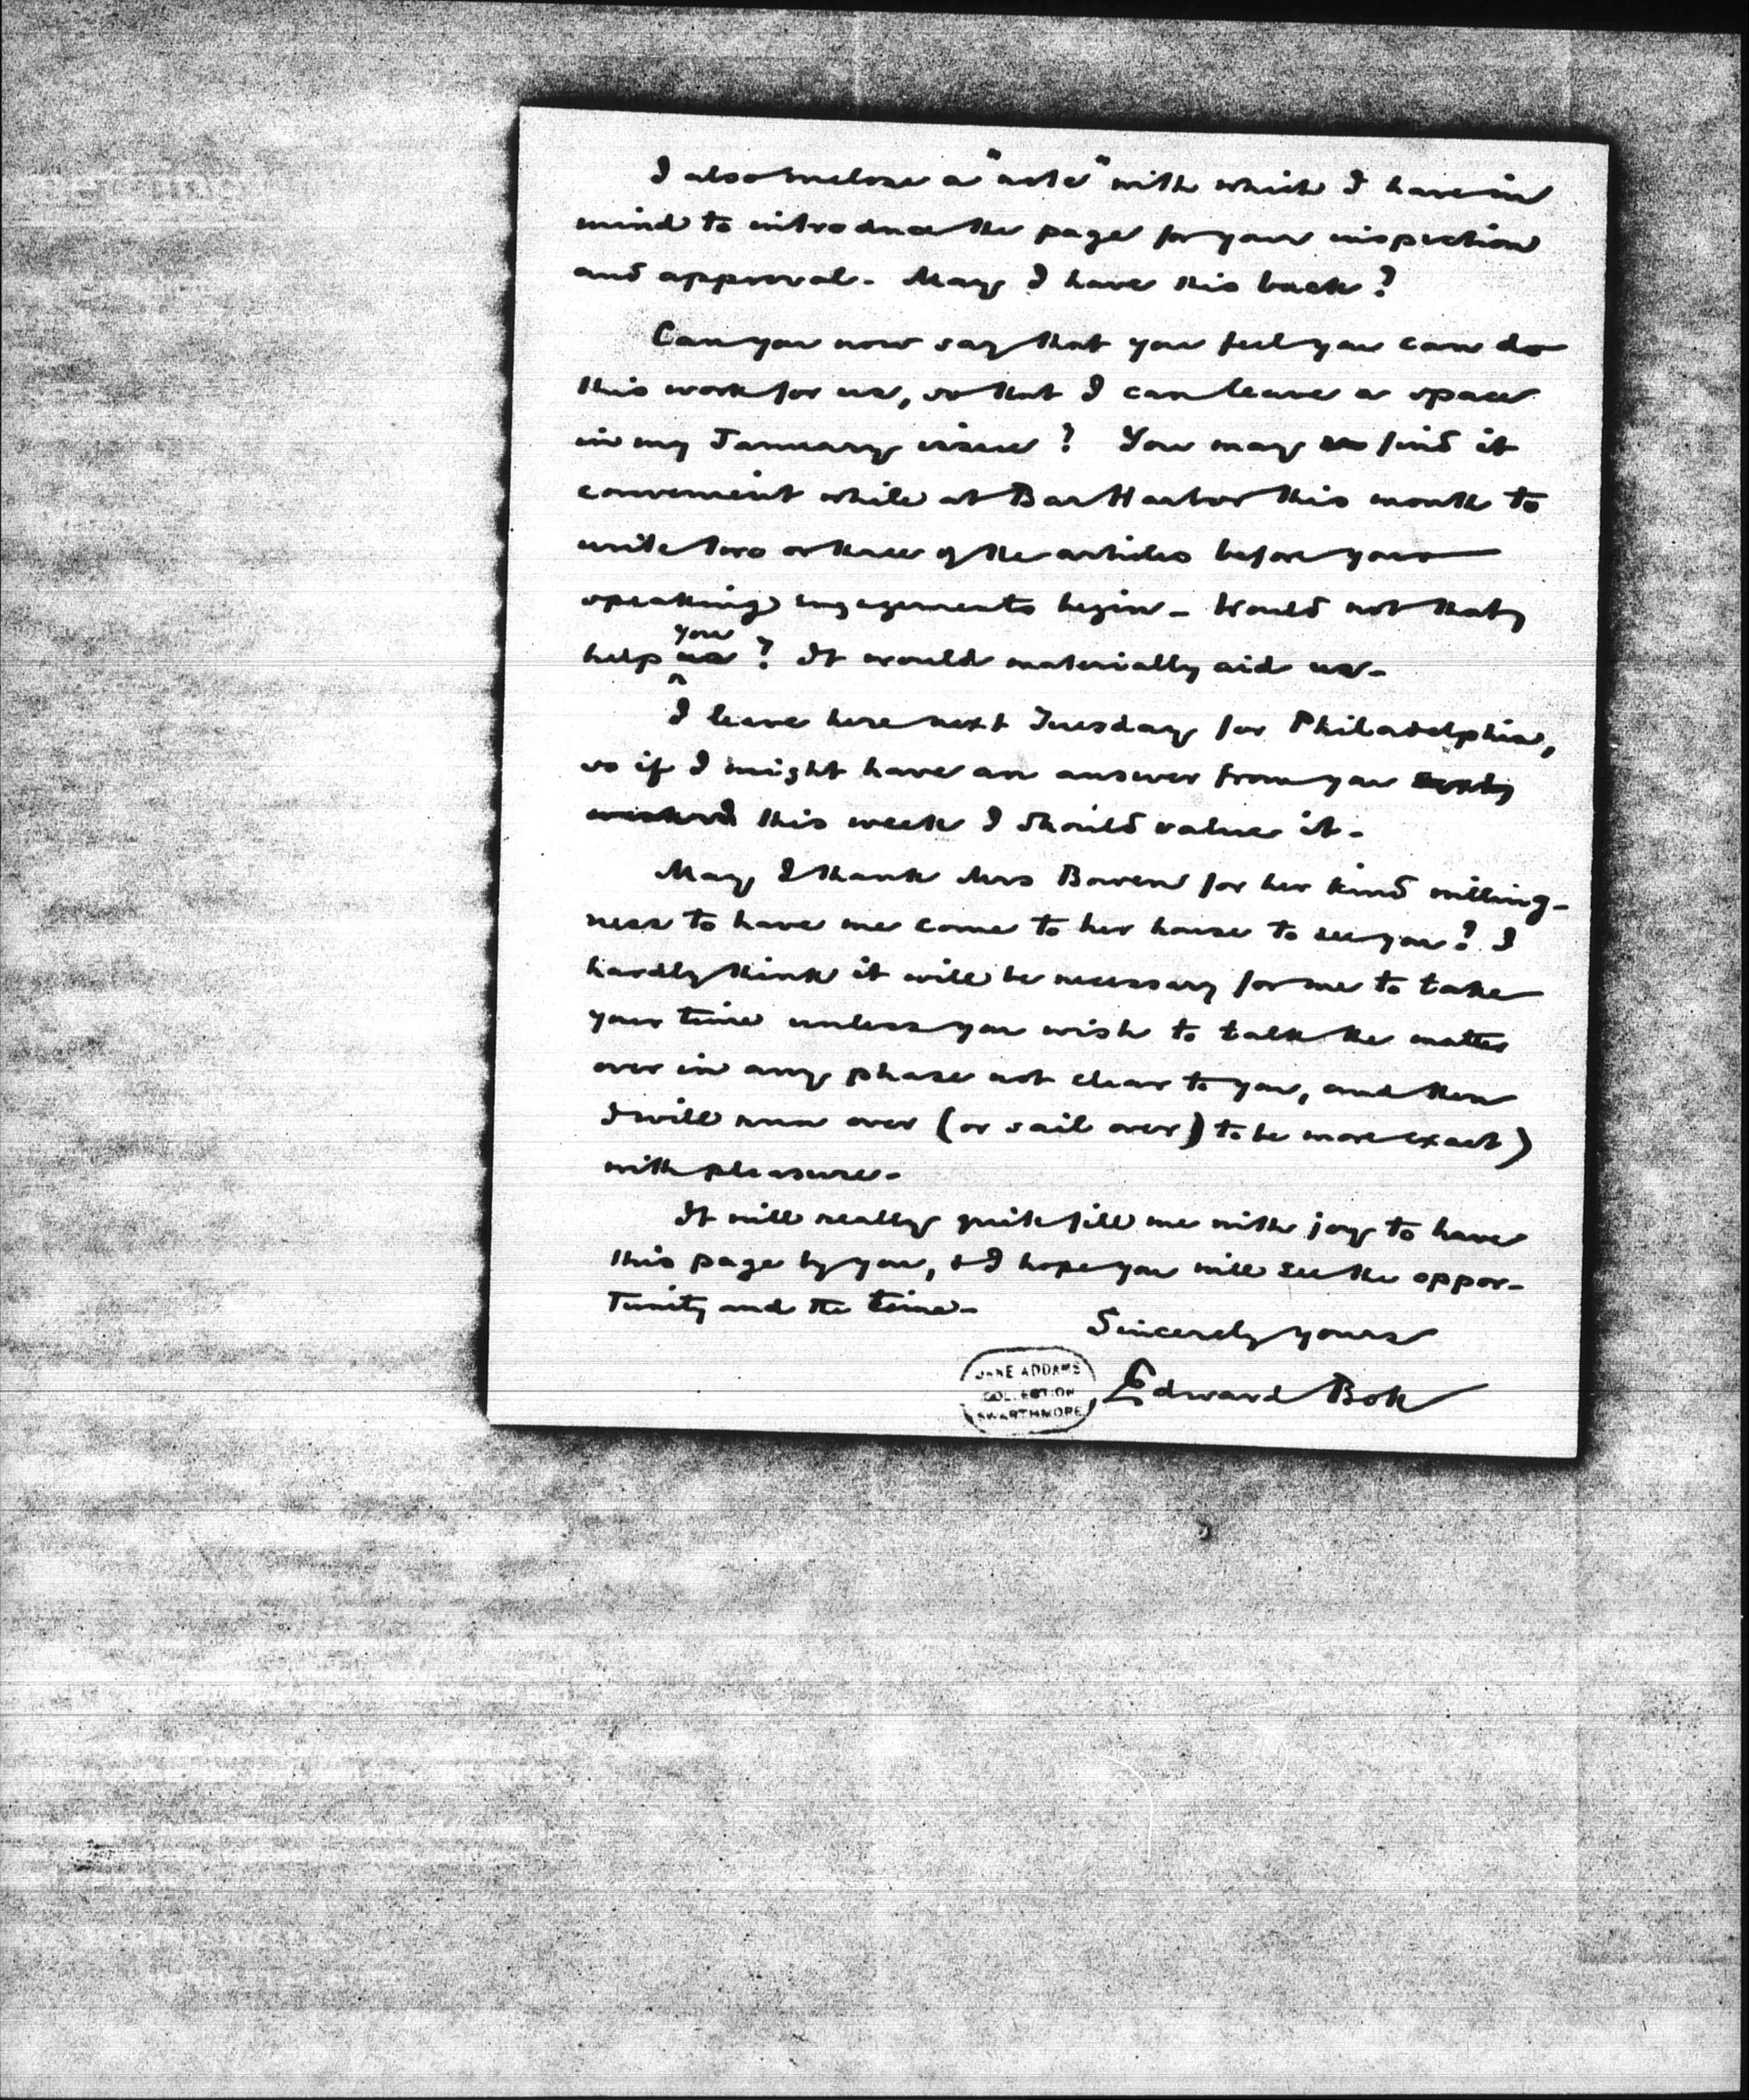 I also enclose a "note" with which I have in
mind to introduce the page for your inspection
and approval. May I have this back?
Can you now say that you feel you can do
this work for us, so that I can leave a space
in my January issue? You may find it
convenient while at Bar Harbor this month to
write two or three of the articles before your
speaking engagements begin. Would not that
you
help us? It would materially aid us.
I leave here next Tuesday for Philadelphia,
so if I might have an answer from you
this week I should value it.
May I thank Mrs Bowen for her kind willing-
ness to have me come to her house to see you? I
hardly think it will be necessary for me to take
your time unless you wish to talk the matter
over in any phase not clear to you, and then
I will run over (or sail over) to be more exact)
with pleasure.
It will really quite fill me with joy to have
this page by you, & I hope you will see the oppor-
tunity and the time.
Sincerely yours
Edward Bok
JANE ADDAMS
COLLECTION
SWARTHMORE